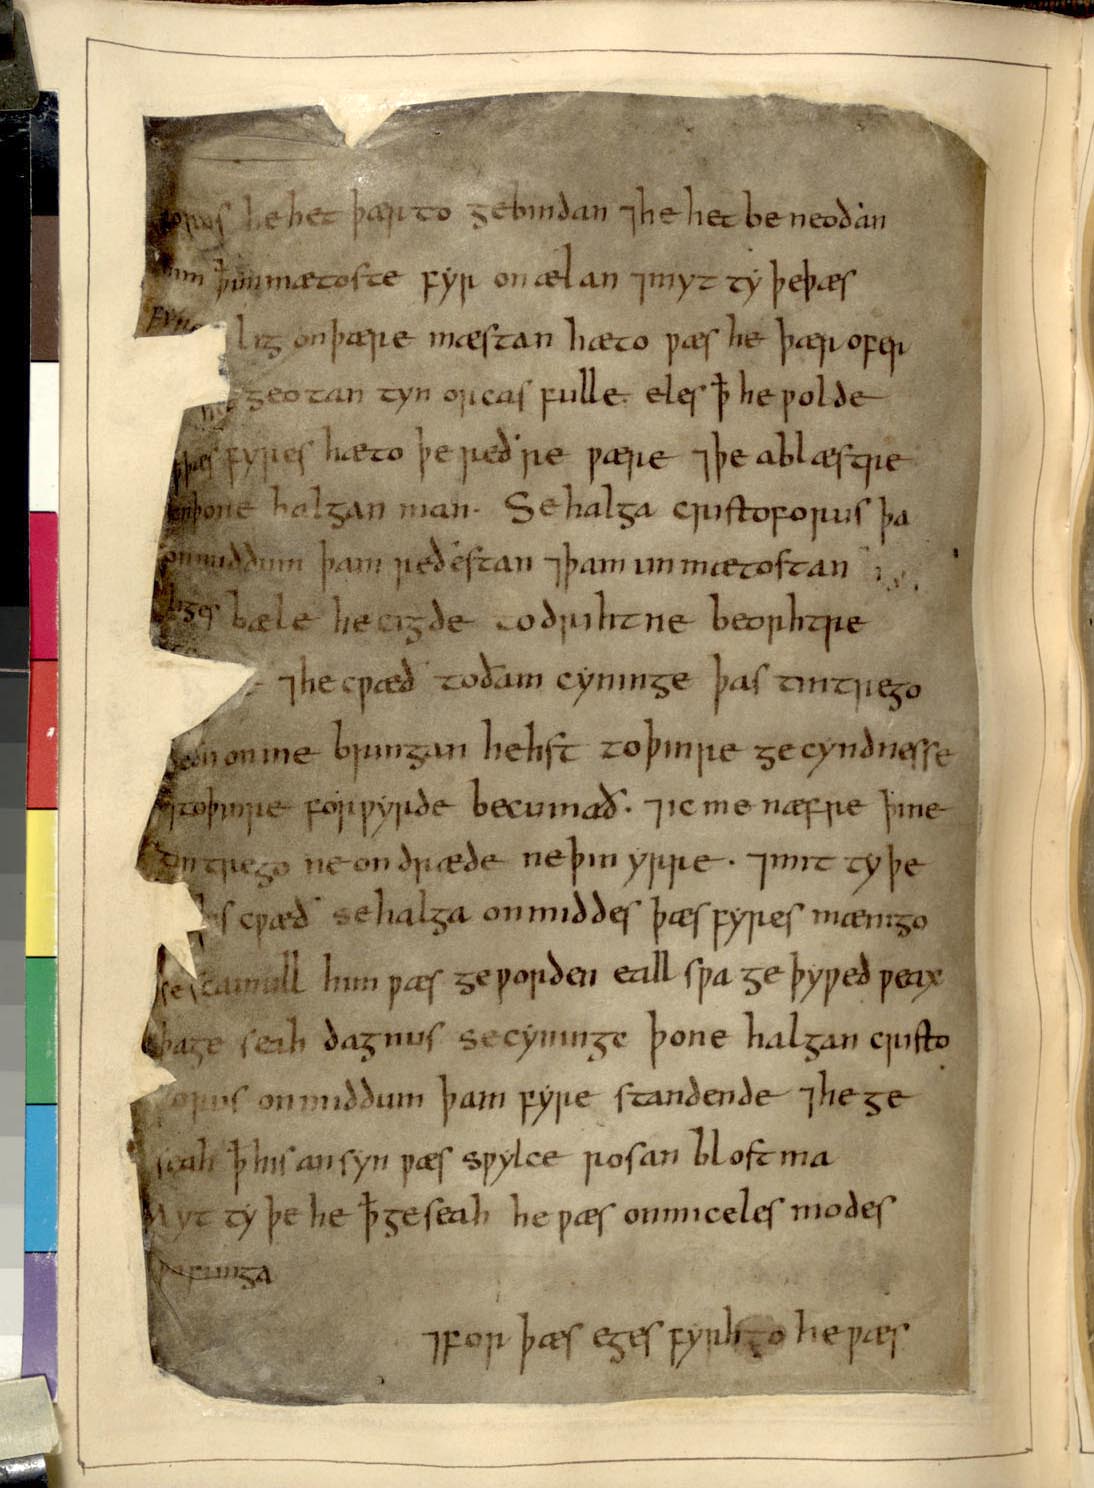 he het þær to gebindan ⁊ he het be neoðan
þ unmætoste fyr onælan ⁊ myt tẏ þe þæs
lig on þære mæstan hæto wæs he þær ofer
geotan tyn orcas fulle eles ꝥ he wolde
þæs fyres hæto þe reðre wære ⁊ þe ablæstre
þone halgan man· Se halga cristoforus þa
on middum þam reðestan ⁊ þam unmætostan
liges bæle he cigde to drihtne beorhtre
⁊ he cwæð to ðam cẏninge þas tintrego
on me bringan hehst to þinre gecyndnesse
⁊ to þinre forwẏrde becumað· ⁊ ic me næfre þine
tintrego ne ondræde ne þin yrre· ⁊ mit tẏ þe
cwæð se halga on middes þæs fẏres mænigo
se scamull him wæs geworden eall swa geþẏwed weax
þa geseah dagnus se cẏninge þone halgan cristo
forus on middum þam fẏre standende ⁊ he ge
seah ꝥ his ansẏn wæs swẏlce rosan blostma
Myt tẏ þe he ꝥ geseah he wæs on miceles modes
wafunga
⁊ for þæs eges fẏrhto he wæs